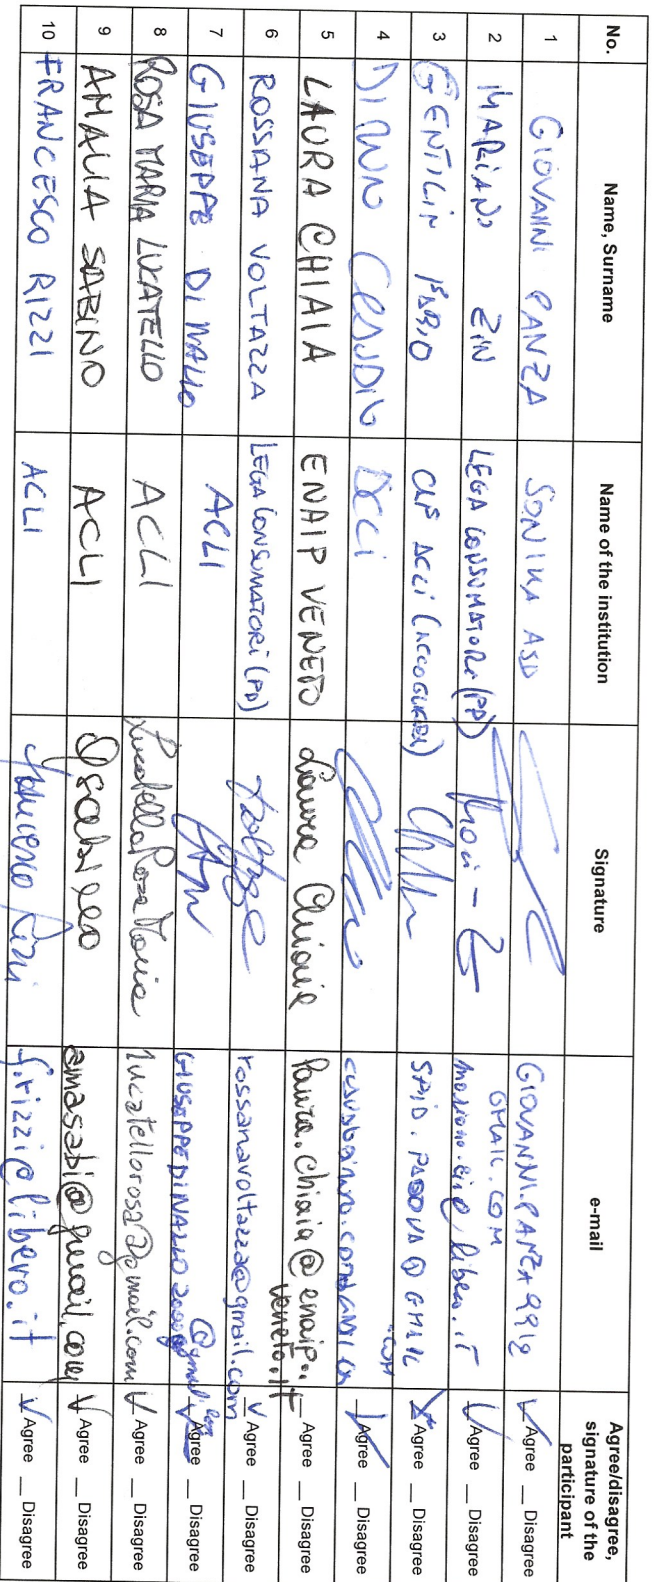 No. Name, Surname Name of the institution Signature e-mail Agree/disagree, signature of the participant
1 GIOVANNI PANZA SONIKA ASD GIOVANNI.PANZA 991@ GMAIL.COM Agree __ Disagree
2 MARIANO ZIN LEGA CONSUMATORI (PD) mariano.zin@libero.it Agree __ Disagree
3 GENTILIN ACLI SPID.PADOVA@GMAIL Agree __ Disagree
4 CLAUDIO ACLI .COM Agree __ Disagree
5 LAURA CHIAIA ENAIP VENETO Laura Chiaia laura.chiaia@enaip.veneto.it Agree __ Disagree
6 ROSSANA VOLTAZZA LEGA CONSUMATORI (PD) rossanavoltazza@gmail.com Agree __ Disagree
7 GIUSEPPE DI ACLI @gmail.com Agree __ Disagree
8 ROSA MARIA LUCATELLO ACLI Lucatello Rosa Maria lucatellorosa2@gmail.com Agree __ Disagree
9 AMALIA SABINO ACLI amasabi@gmail.com Agree __ Disagree
10 FRANCESCO RIZZI ACLI Francesco Rizzi f.rizzi@libero.it Agree __ Disagree